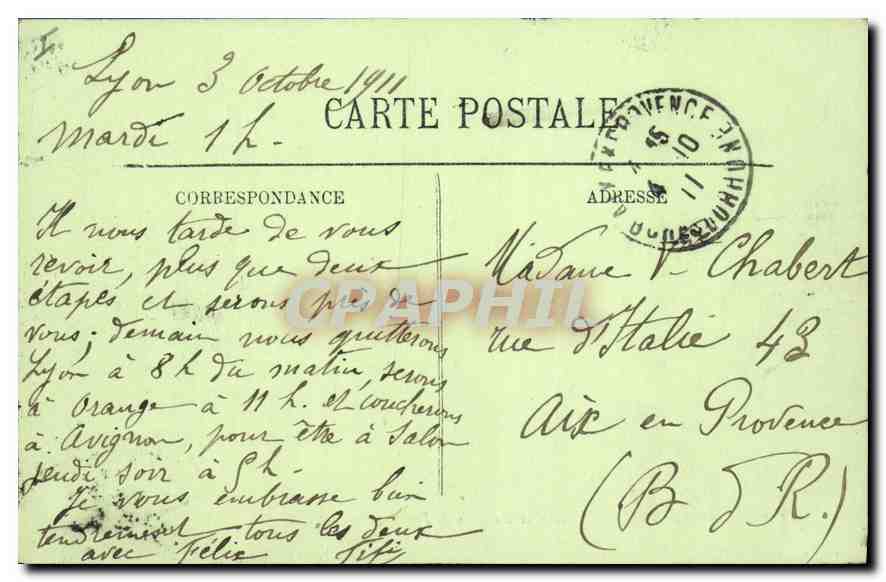 Lyon 3 Octobre 1911
CARTE POSTALE
Mardi 1 h.
CORRESPONDANCE
Il nous tarde de vous
revoir, plus que deux
étapes et serons près de
vous; demain nous quitterons
Lyon à 8 h du matin, serons
à Orange à 11 h. et coucherons
à Avignon, pour être à Salon
jeudi soir à 5h.
Je vous embrasse bien
tendrement tous les deux
avec Félix Fifi
ADRESSE
Madame Vve Chabert
rue d'Italie 43
Aix en Provence
(B d R.)
PROVENCE
15
4 10
11
BOUCHES DU RHONE
CPAPHIL